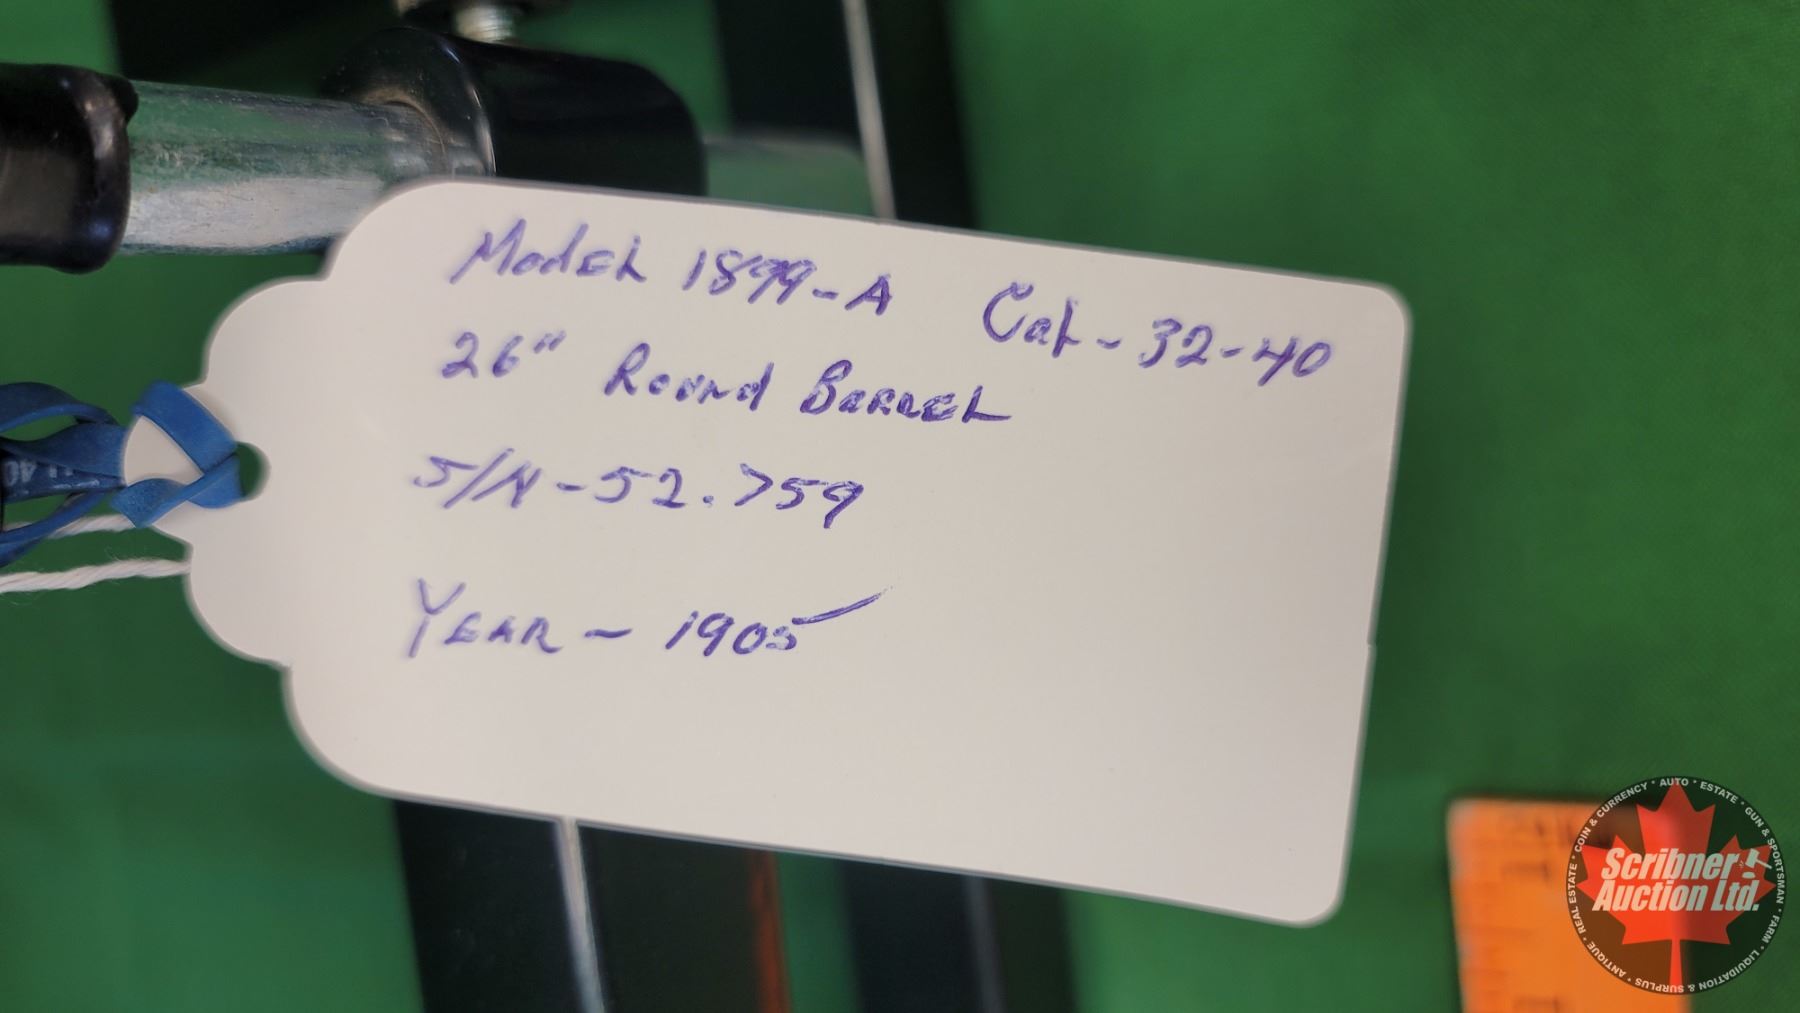 Model 1899-A Cal-32-40
26" Round Barrel
S/N-52.759
Year - 1905
COIN & CURRENCY • AUTO • ESTATE • GUN & SPORTSMAN • FARM • LIQUIDATION & SURPLUS • ANTIQUE • REAL ESTATE
Scribner
Auction Ltd.